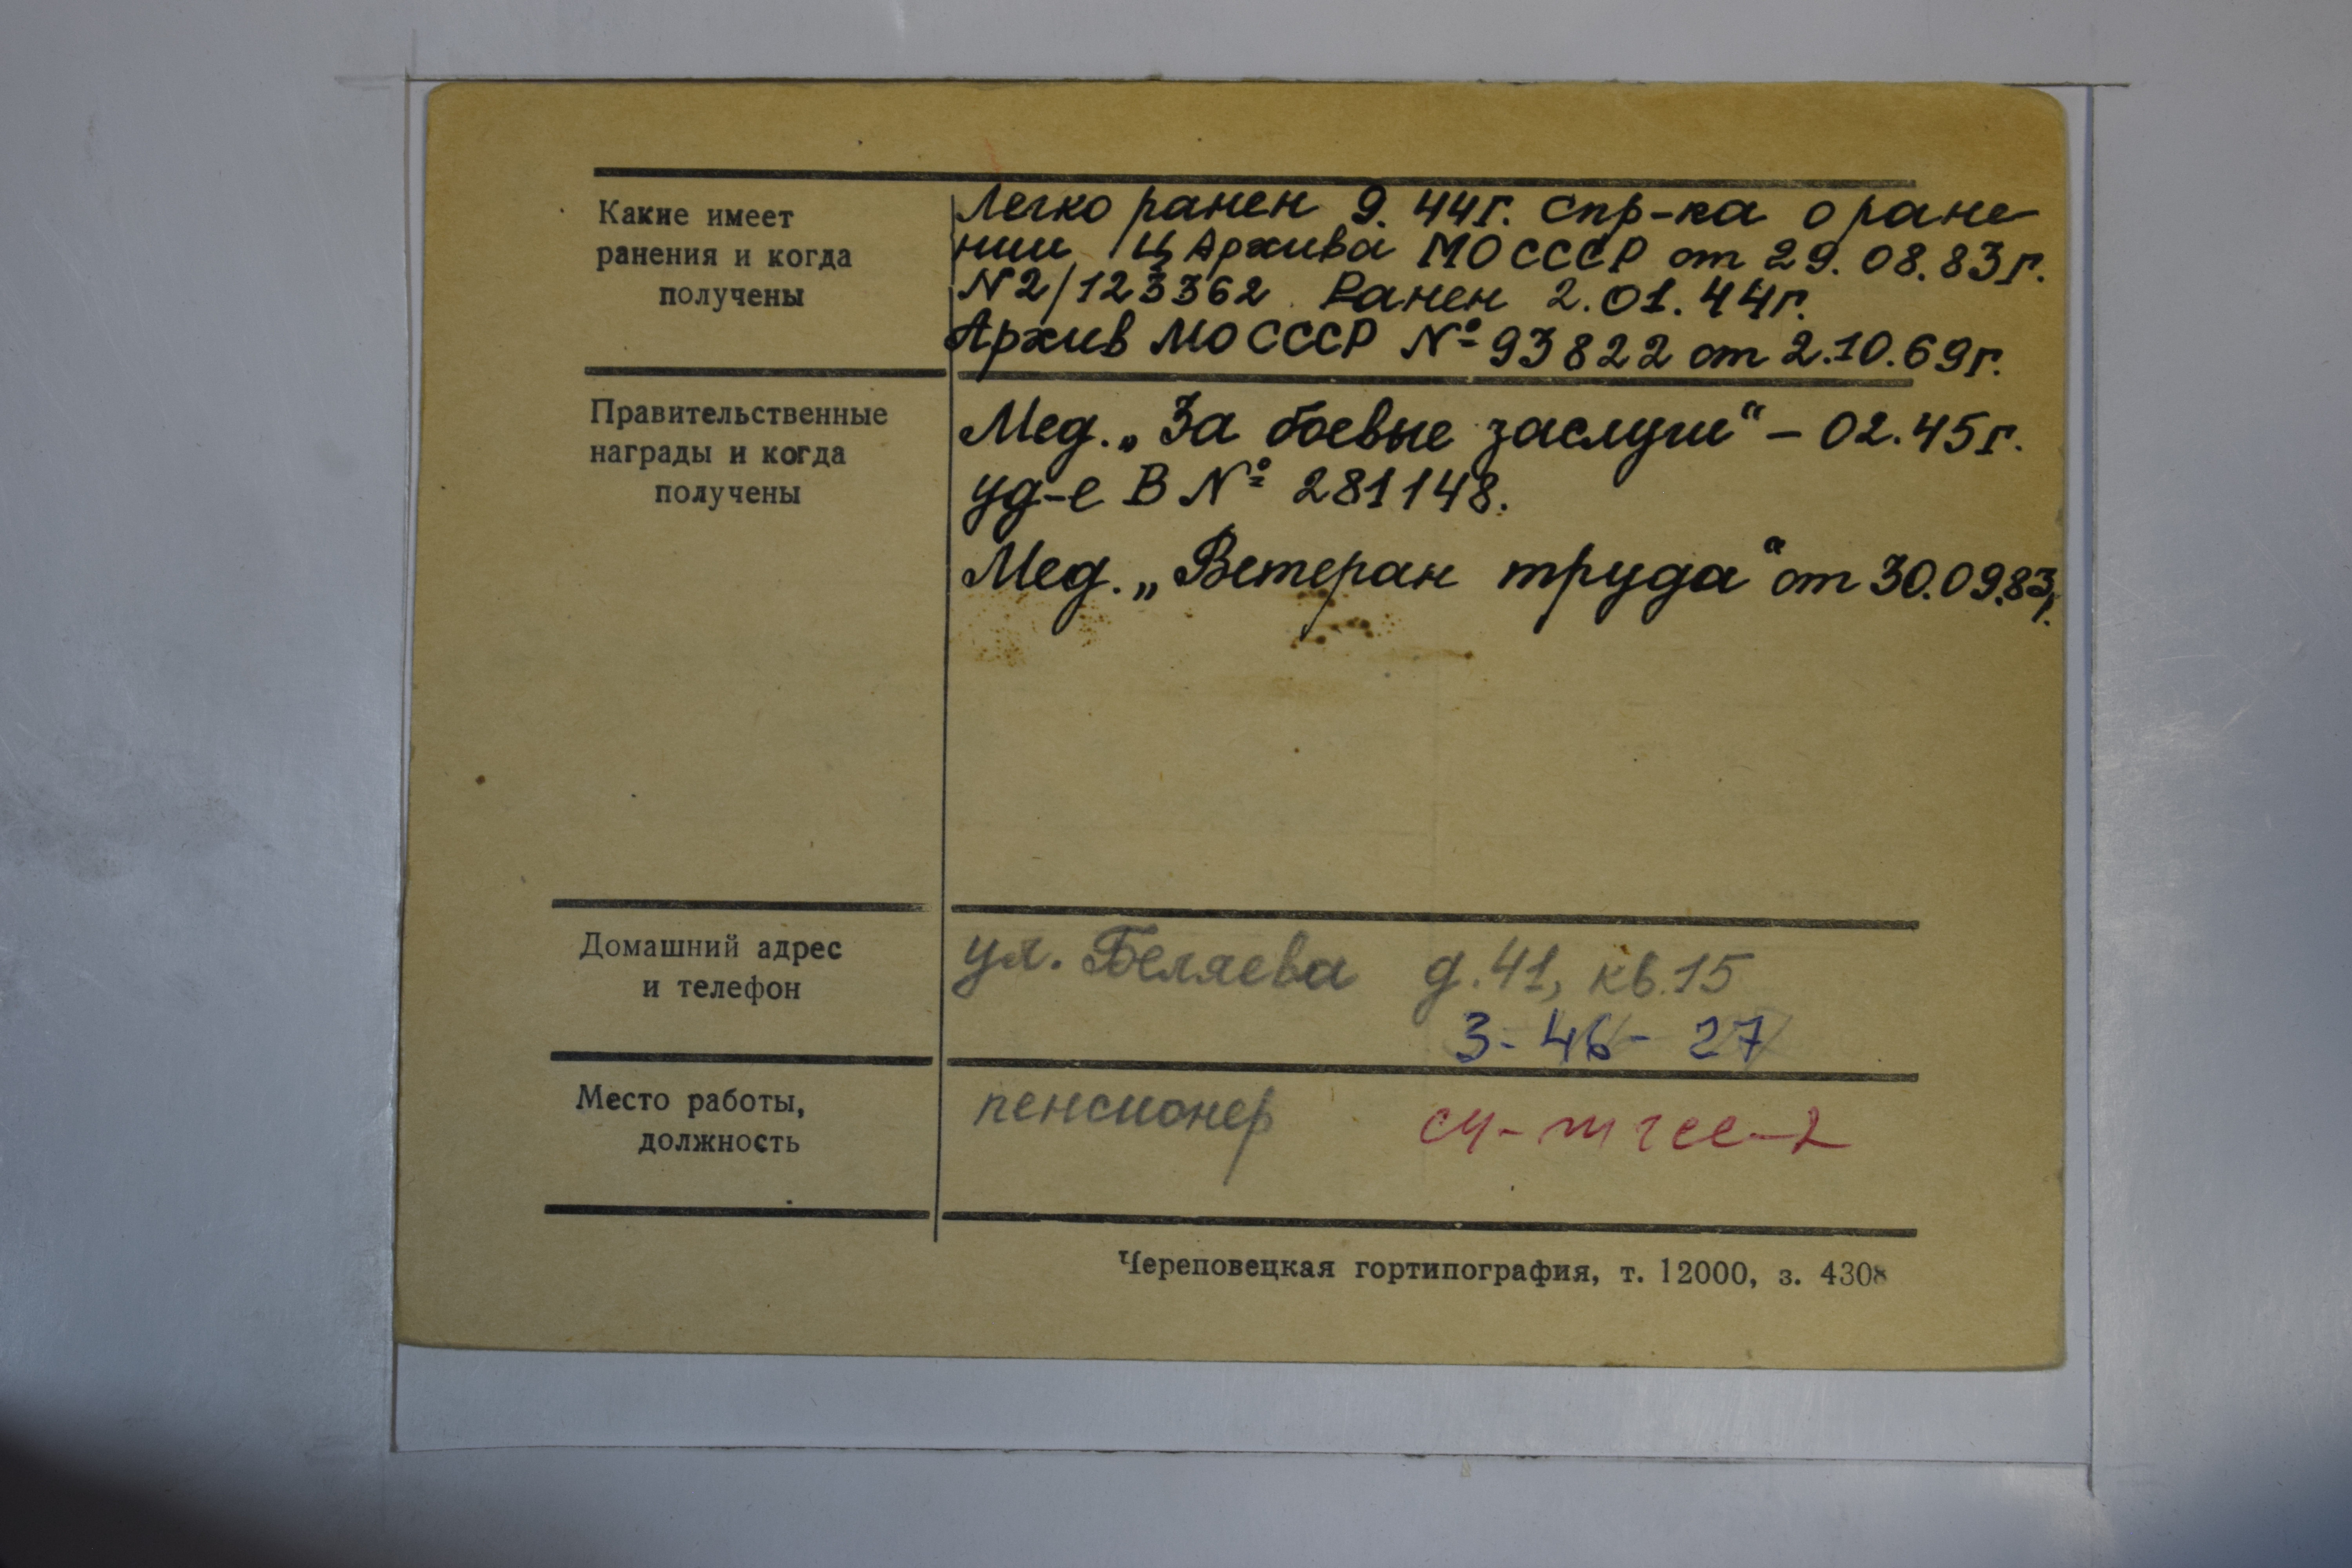 Какие имеет
ранения и когда
получены
Легко ранен 9.44г. спр-ка о ране-
нии ЦАрхива МО СССР от 29.08.83г.
N2/123362. Ранен 2.01.44г.
Архив МО СССР № 93822 от 2.10.69г.
Правительственные
награды и когда
получены
Мед. „За боевые заслуги“ – 02.45г.
уд-е В № 281148.
Мед. „Ветеран труда“ от 30.09.83г.
Домашний адрес
и телефон
ул. Беляева д.41, кв.15
3-46-27
Место работы,
должность
пенсионер
Череповецкая гортипография, т. 12000, з. 4308